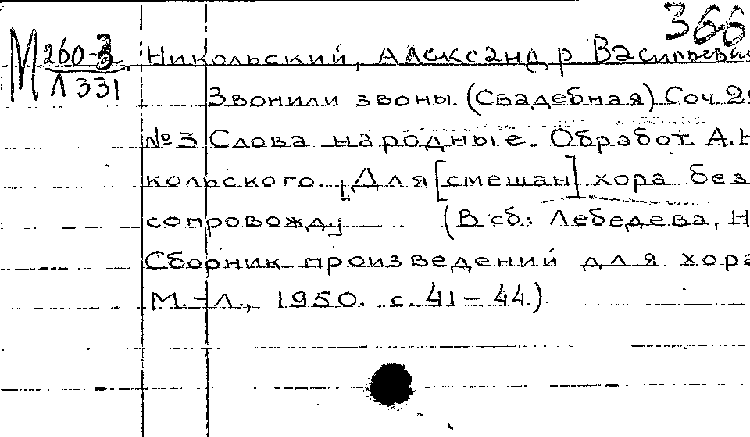 366
М 260-3 Никольский, Александр Васильеви
Л 331
Звонили звоны. (Свадебная) Соч. 2
№3 Слова народные. Обработ. А. Н
кольского. [Для [смешан] хора без
сопровожд.] (В сб: Лебедева, Н
Сборник произведений для хора
М.-Л., 1950. с. 41-44.)